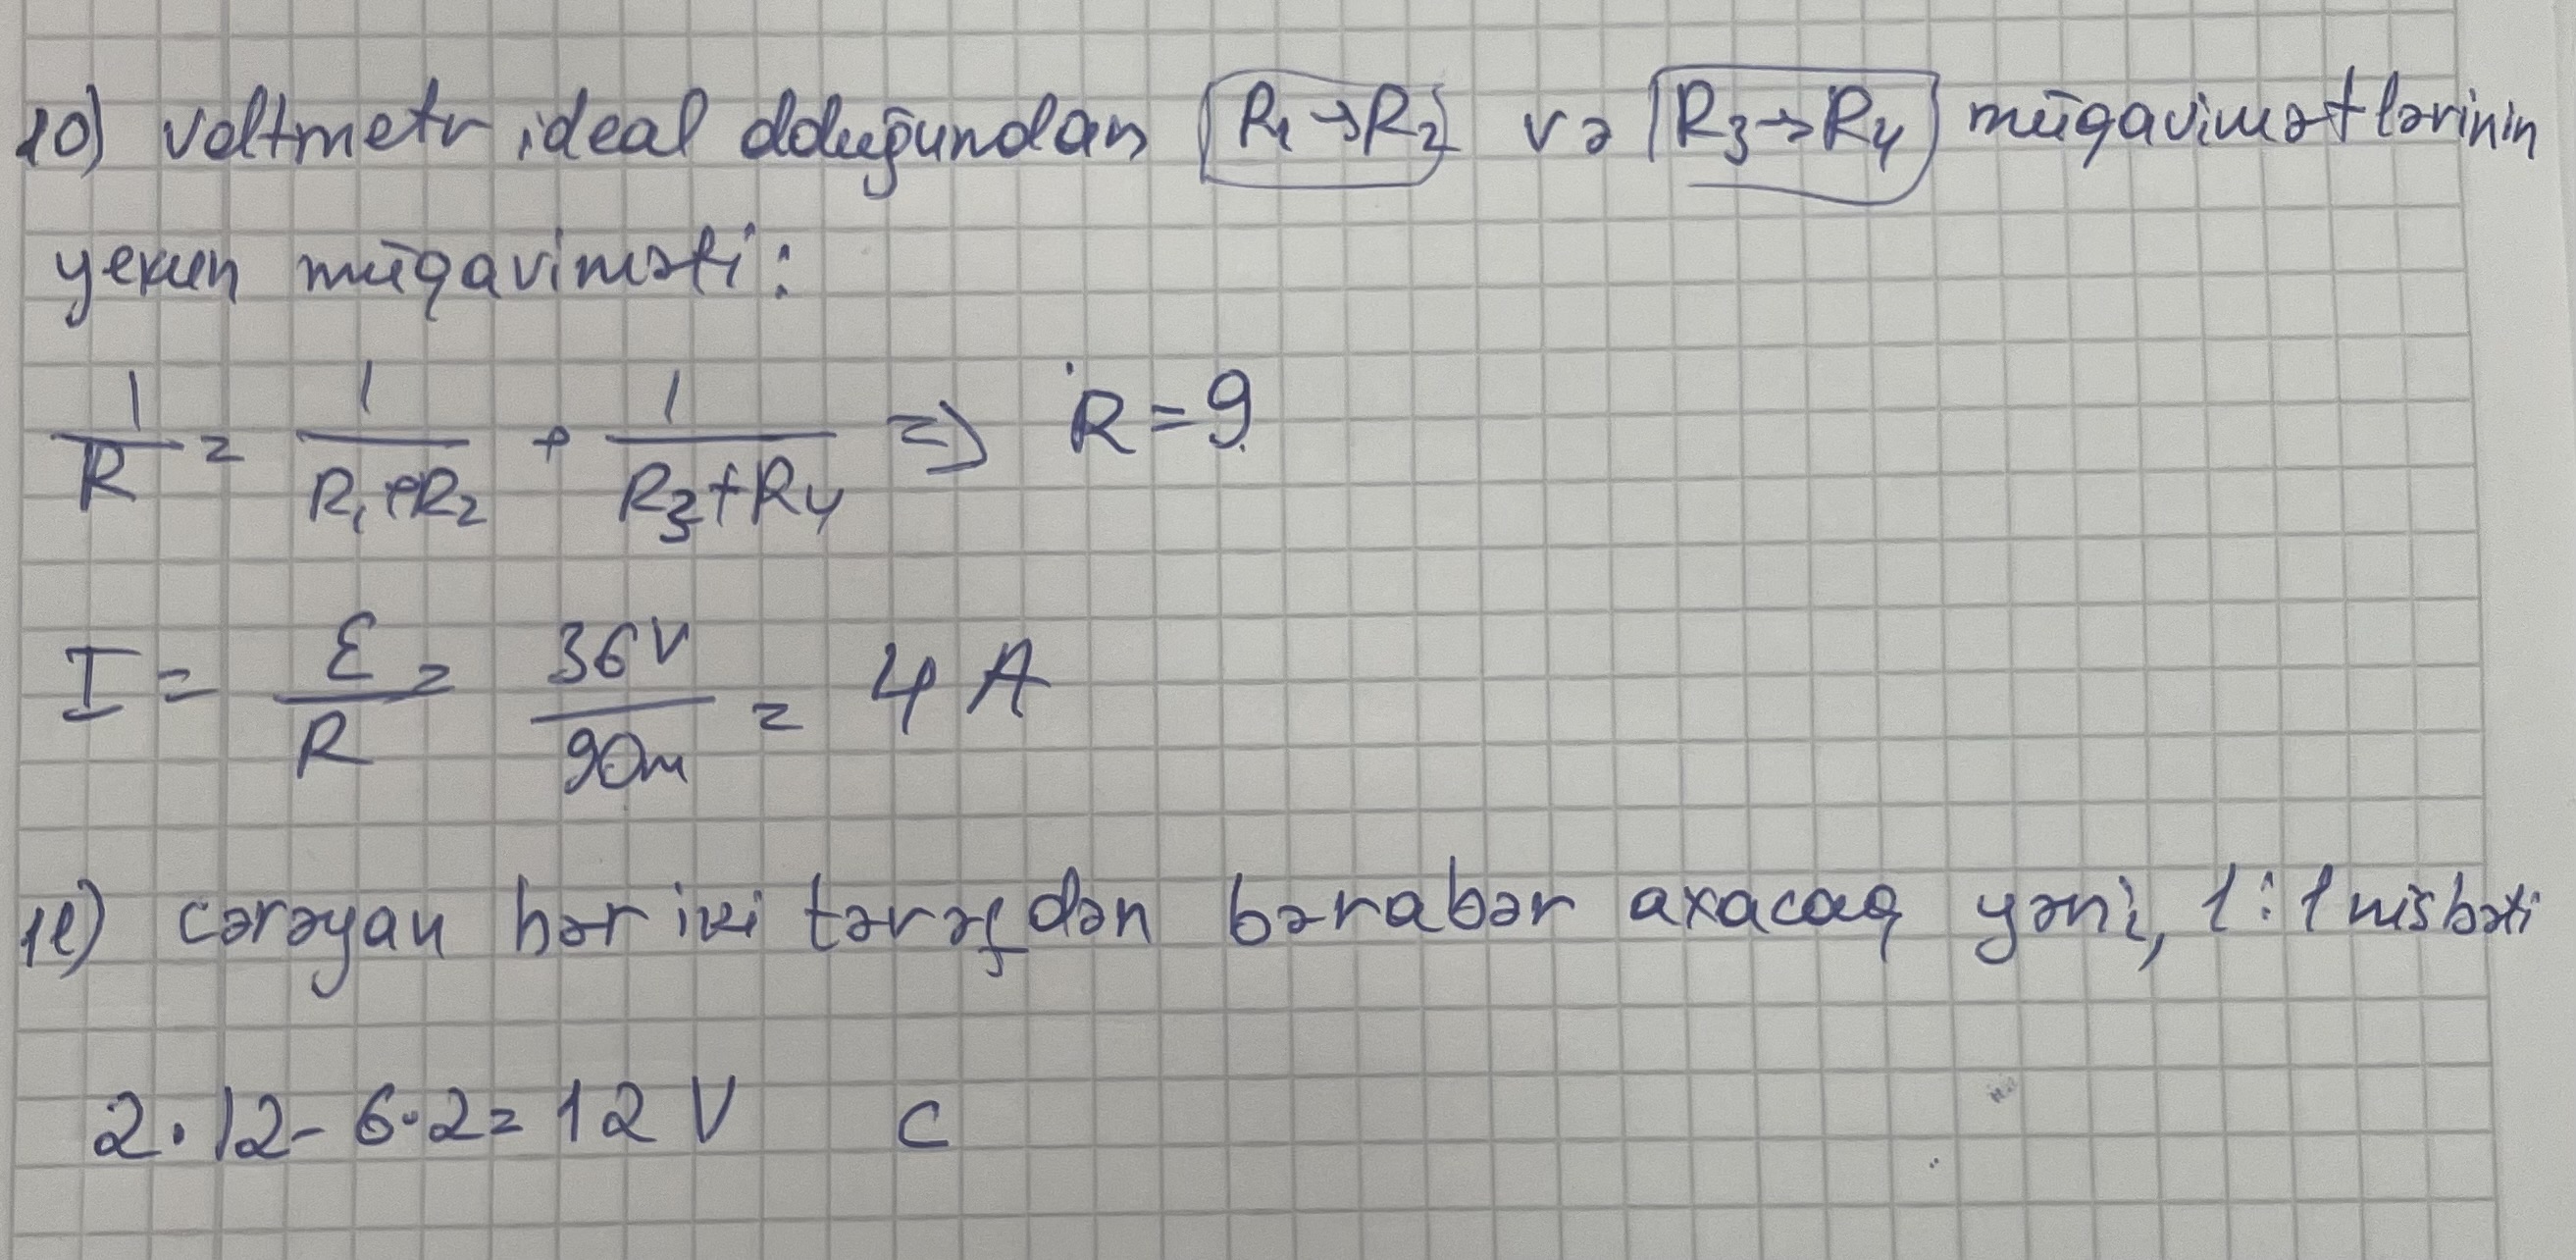 10) voltmetr ideal olduğundan R₁→R₂ və R₃→R₄ müqavimətlərinin
yekun müqaviməti:
1/R = 1/(R₁+R₂) + 1/(R₃+R₄) => R = 9
I = ε/R = 36V/9Om = 4 A
11) cərəyan hər iki tərəfdən bərabər axacaq yəni, 1:1 nisbəti
2·12-6·2=12 V C